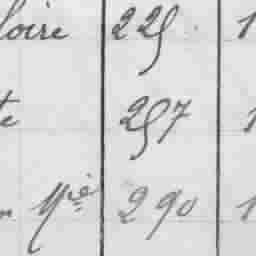 loire 225 1
te 257 1
n Mie 290 1